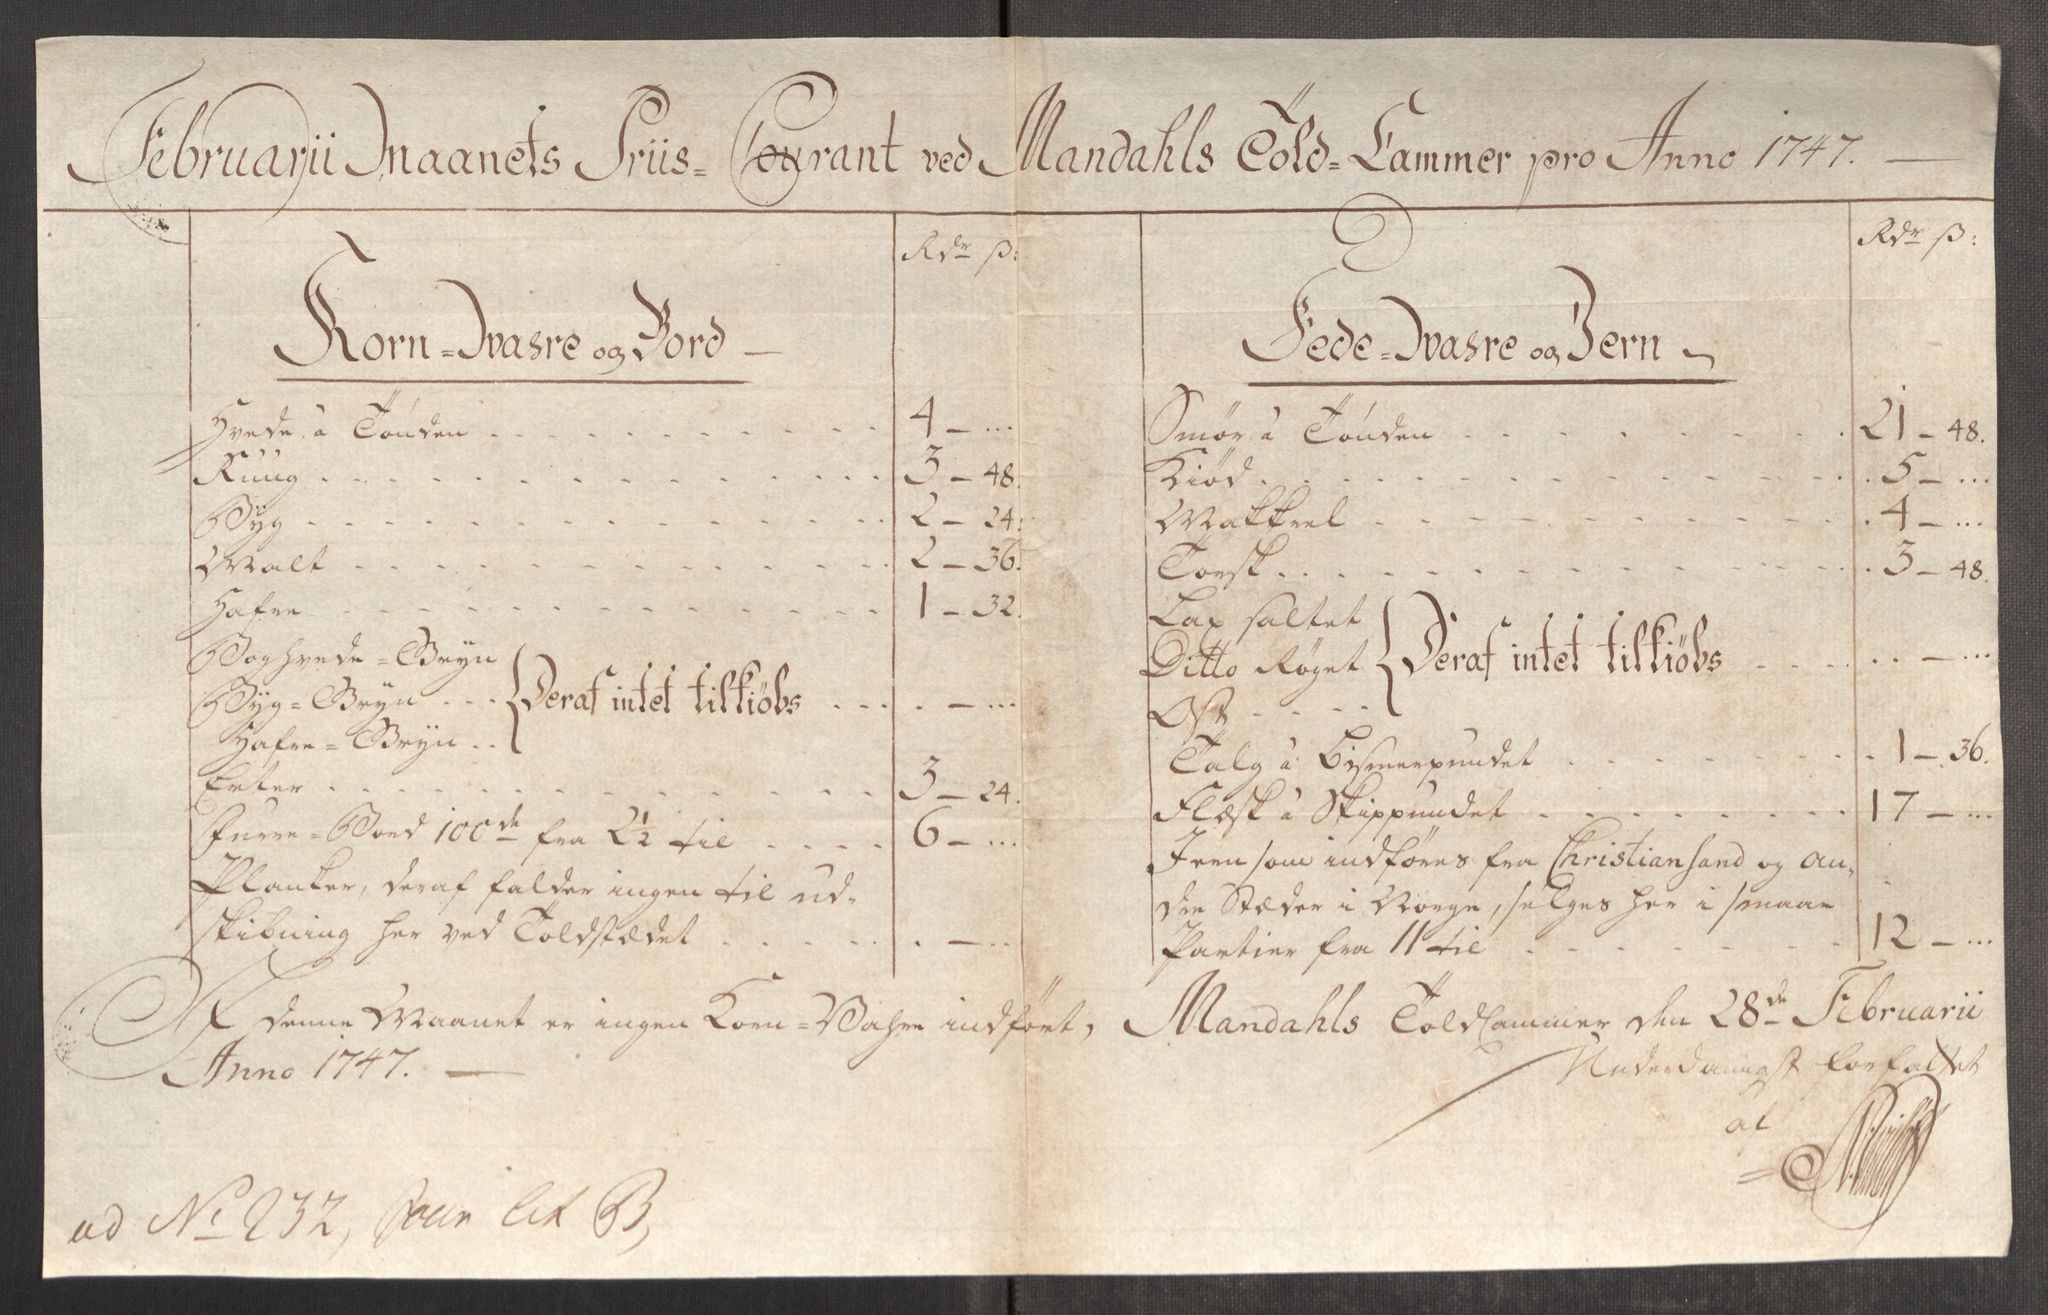 Februarii Maanets Priis-Courant ved Mandahls Told-Cammer pro Anno 1747.
Rdr ß:
Korn-Wahre og Bord
Hvede à Tönden 4 - ...
Rüüg 3 - 48.
Byg 2 - 24:
Malt 2 - 36.
Hafre 1 - 32.
Boghvede-Gryn
Byg-Gryn Deraf intet tilkiöbs . - ...
Hafre-Gryn
Erter 3 - 24.
Furre-Bord 100de fra 2½ til 6 - ...
Planker, deraf falder ingen til ud-
skibning her ved Toldstædet . - ..
Rdr ß:
Fede-Wahre og Jern
Smör à Tönden 21 - 48.
Kiöd 5 - ...
Makkrel 4 - ...
Torsk 3 - 48.
Lax saltet
Ditto Röget Deraf intet tilkiöbs . - ...
Ost
Talg à Bismerpundet 1 - 36.
Flæsk à Skippundet 17 - ...
Jern som indföres fra Christiansand og an-
dre Stæder i Norge, selges her i smaae
Partier fra 11 til 12 - ...
I denne Maanet er ingen Korn-Vahre indfört, Mandahls ToldCammer den 28de Februarii
Anno 1747.
Underdanigst forfattet
af
ad No 232, lit B,